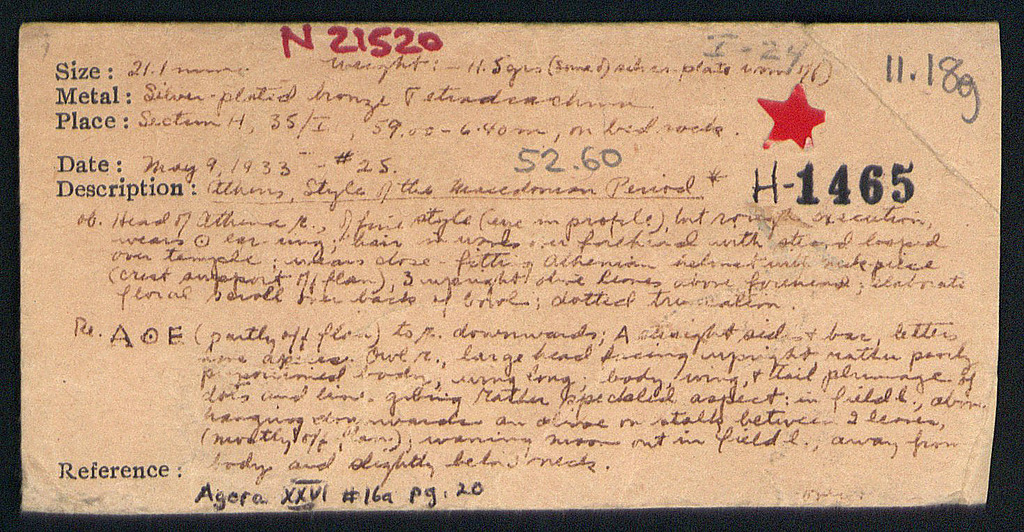 N 21520
I-24
11.18g
Size : 21.1 mm. Weight : - 11.5 grs (some of silver-plate worn off)
Metal : Silver-plated bronze Tetradrachm
Place : Section H, 35/I, 59.00 - 6.40m, on bed rock.
52.60
Date : May 9, 1933 - #25.
H-1465
Description : Athens, Style of the Macedonian Period *
ob. Head of Athena r., of fine style (eye in profile), but rough execution,
wears ⊙ ear-ring; hair in over forehead with strand looped
over temple; wears close-fitting Athenian helmet with neckpiece
(crest support off flan), 3 upright olive leaves above forehead; elaborate
floral scroll over back of bowl; dotted truncation.
Re. A Θ E (partly off flan) to r. downwards; A straight sides & bar, letters
Owl r., large head facing upright rather poorly
proportioned body, wing long, body, wing, & tail plumage of
dots and lines giving rather speckled aspect; in field l., above,
hanging downwards an olive on stalk between 2 leaves,
(mostly off flan); waning moon out in field l., away from
body and slightly below neck.
Reference :
Agora XXVI #16a pg. 20